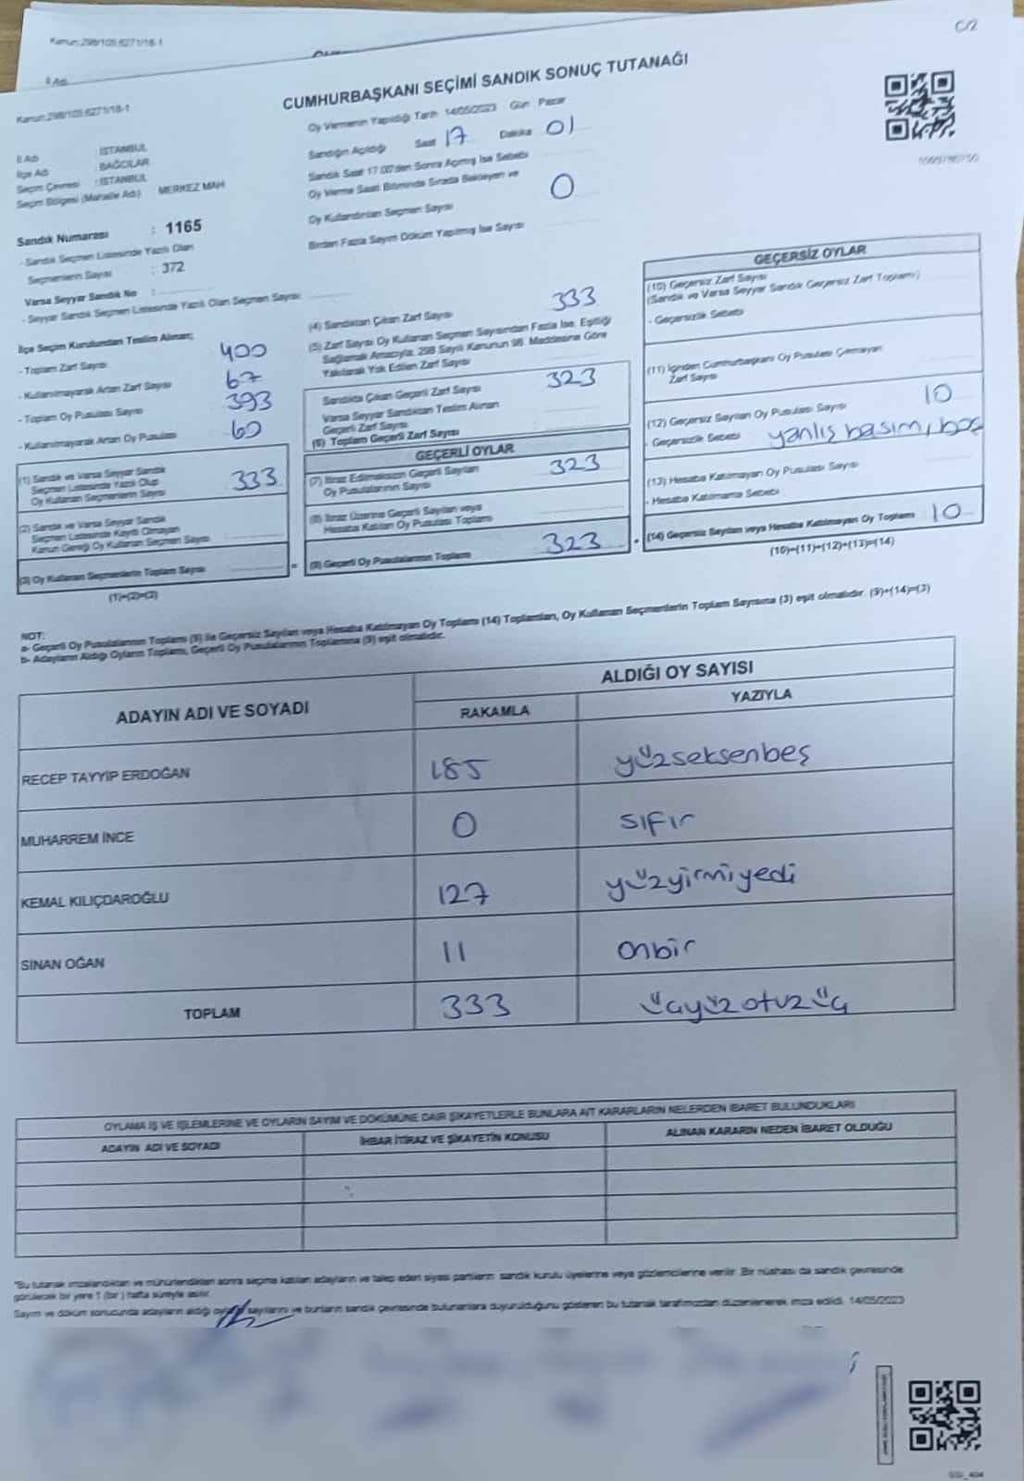 Kanun:298/105 6271/18-1
C/2
İl Adı
Kanun:298/105 6271/18-1
CUMHURBAŞKANI SEÇİMİ SANDIK SONUÇ TUTANAĞI
Oy Vermenin Yapıldığı Tarih 14/05/2023 Gün Pazar
Sandığın Açıldığı Saat 17 Dakika 01
Sandık Saat 17.00'den Sonra Açılmış İse Sebebi
Oy Verme Saati Bitiminde Sırada Bekleyen ve
Oy Kullandırılan Seçmen Sayısı 0
Birden Fazla Sayım Döküm Yapılmış İse Sayısı
İl Adı : İSTANBUL
İlçe Adı : BAĞCILAR
Seçim Çevresi : İSTANBUL
Seçim Bölgesi (Mahalle Adı) MERKEZ MAH
Sandık Numarası : 1165
- Sandık Seçmen Listesinde Yazılı Olan
Seçmenlerin Sayısı : 372
Varsa Seyyar Sandık No :
- Seyyar Sandık Seçmen Listesinde Yazılı Olan Seçmen Sayısı
İlçe Seçim Kurulundan Teslim Alınan;
- Toplam Zarf Sayısı 400
- Kullanılmayarak Artan Zarf Sayısı 67
- Toplam Oy Pusulası Sayısı 393
- Kullanılmayarak Artan Oy Pusulası 60
(1) Sandık ve Varsa Seyyar Sandık
Seçmen Listesinde Yazılı Olup
Oy Kullanan Seçmenlerin Sayısı 333
(2) Sandık ve Varsa Seyyar Sandık
Seçmen Listesinde Kayıtlı Olmayan
Kanun Gereği Oy Kullanan Seçmen Sayısı
(3) Oy Kullanan Seçmenlerin Toplam Sayısı
(1)+(2)=(3)
(4) Sandıktan Çıkan Zarf Sayısı 333
(5) Zarf Sayısı Oy Kullanan Seçmen Sayısından Fazla İse, Eşitliği
Sağlamak Amacıyla, 298 Sayılı Kanunun 98. Maddesine Göre
Yakılarak Yok Edilen Zarf Sayısı
Sandıkta Çıkan Geçerli Zarf Sayısı 323
Varsa Seyyar Sandıktan Teslim Alınan
Geçerli Zarf Sayısı
(6) Toplam Geçerli Zarf Sayısı
GEÇERLİ OYLAR
(7) İtiraz Edilmeksizin Geçerli Sayılan
Oy Pusulalarının Sayısı 323
(8) İtiraz Üzerine Geçerli Sayılan veya
Hesaba Katılan Oy Pusulası Toplamı
(9) Geçerli Oy Pusulalarının Toplamı 323
GEÇERSİZ OYLAR
(10) Geçersiz Zarf Sayısı
(Sandık ve Varsa Seyyar Sandık Geçersiz Zarf Toplamı)
- Geçersizlik Sebebi
(11) İçinden Cumhurbaşkanı Oy Pusulası Çıkmayan
Zarf Sayısı
(12) Geçersiz Sayılan Oy Pusulası Sayısı 10
- Geçersizlik Sebebi yanlış basım, boş
(13) Hesaba Katılmayan Oy Pusulası Sayısı
- Hesaba Katılmama Sebebi
(14) Geçersiz Sayılan veya Hesaba Katılmayan Oy Toplamı 10
(10)+(11)+(12)+(13)=(14)
NOT:
a- Geçerli Oy Pusulalarının Toplamı (9) ile Geçersiz Sayılan veya Hesaba Katılmayan Oy Toplamı (14) Toplamları, Oy Kullanan Seçmenlerin Toplam Sayısına (3) eşit olmalıdır. (9)+(14)=(3)
b- Adayların Aldığı Oyların Toplamı, Geçerli Oy Pusulalarının Toplamına (9) eşit olmalıdır.
ADAYIN ADI VE SOYADI
ALDIĞI OY SAYISI
RAKAMLA YAZIYLA
RECEP TAYYİP ERDOĞAN 185 yüzseksenbeş
MUHARREM İNCE 0 sıfır
KEMAL KILIÇDAROĞLU 127 yüzyirmiyedi
SİNAN OĞAN 11 onbir
TOPLAM 333 üçyüzotuzüç
OYLAMA İŞ VE İŞLEMLERİNE VE OYLARIN SAYIM VE DÖKÜMÜNE DAİR ŞİKAYETLERLE BUNLARA AİT KARARLARIN NELERDEN İBARET BULUNDUKLARI
ADAYIN ADI VE SOYADI İHBAR İTİRAZ VE ŞİKAYETİN KONUSU ALINAN KARARIN NEDEN İBARET OLDUĞU
*Bu tutanak imzalandıktan ve mühürlendikten sonra seçime katılan adayların ve talep eden siyasi partilerin sandık kurulu üyelerine veya gözlemcilerine verilir. Bir nüshası da sandık çevresinde
görülecek bir yere 1 (bir) hafta süreyle asılır.
Sayım ve döküm sonucunda adayların aldığı oyların sayılarını ve bunların sandık çevresinde bulunanlara duyurulduğunu gösteren bu tutanak tarafımızdan düzenlenerek imza edildi. 14/05/2023